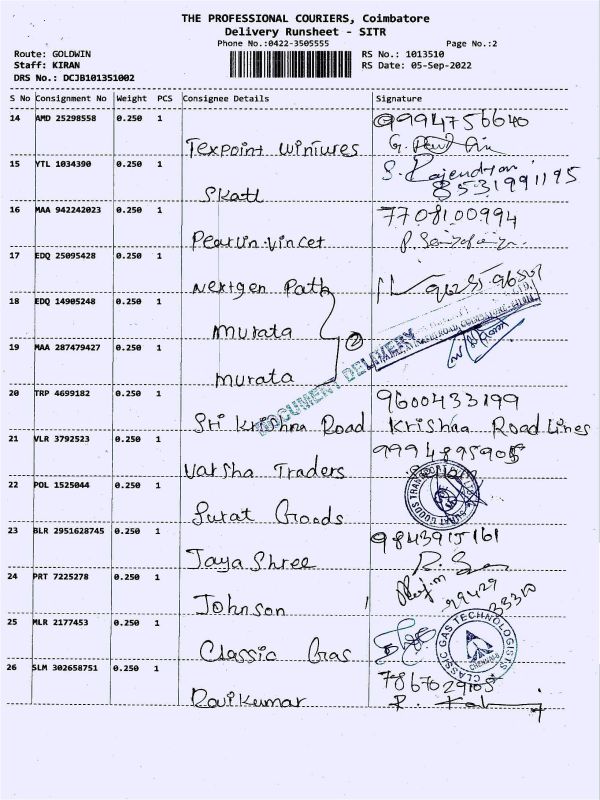 THE PROFESSIONAL COURIERS, Coimbatore
Delivery Runsheet - SITR
Phone No.:0422-3505555 Page No.:2
Route: GOLDWIN RS No.: 1013510
Staff: KIRAN RS Date: 05-Sep-2022
DRS No.: DCJB101351002
S No Consignment No Weight PCS Consignee Details Signature
14 AMD 25298558 0.250 1 9994756640
Texpoint
15 YTL 1034390 0.250 1 S. Rajendran
8531991195
Skatl
16 MAA 942242023 0.250 1 7708100994
Pearlin.vincet
17 EDQ 25095428 0.250 1
Nextgen Path
18 EDQ 14905248 0.250 1
murata
2
DOCUMENT DELIVERY
19 MAA 287479427 0.250 1
murata
20 TRP 4699182 0.250 1 9600433199
Sri Krishna Road Krishna Road Lines
21 VLR 3792523 0.250 1 9994895905
Varsha Traders
22 POL 1525044 0.250 1
Surat Goods
23 BLR 2951628745 0.250 1 9843915161
Jaya Shree
24 PRT 7225278 0.250 1
99429
33310
Johnson
25 MLR 2177453 0.250 1
CLASSIC GAS TECHNOLOGISTS
CHENNAI-8
Classic Gas
26 SLM 302658751 0.250 1 7867029105
Ravikumar